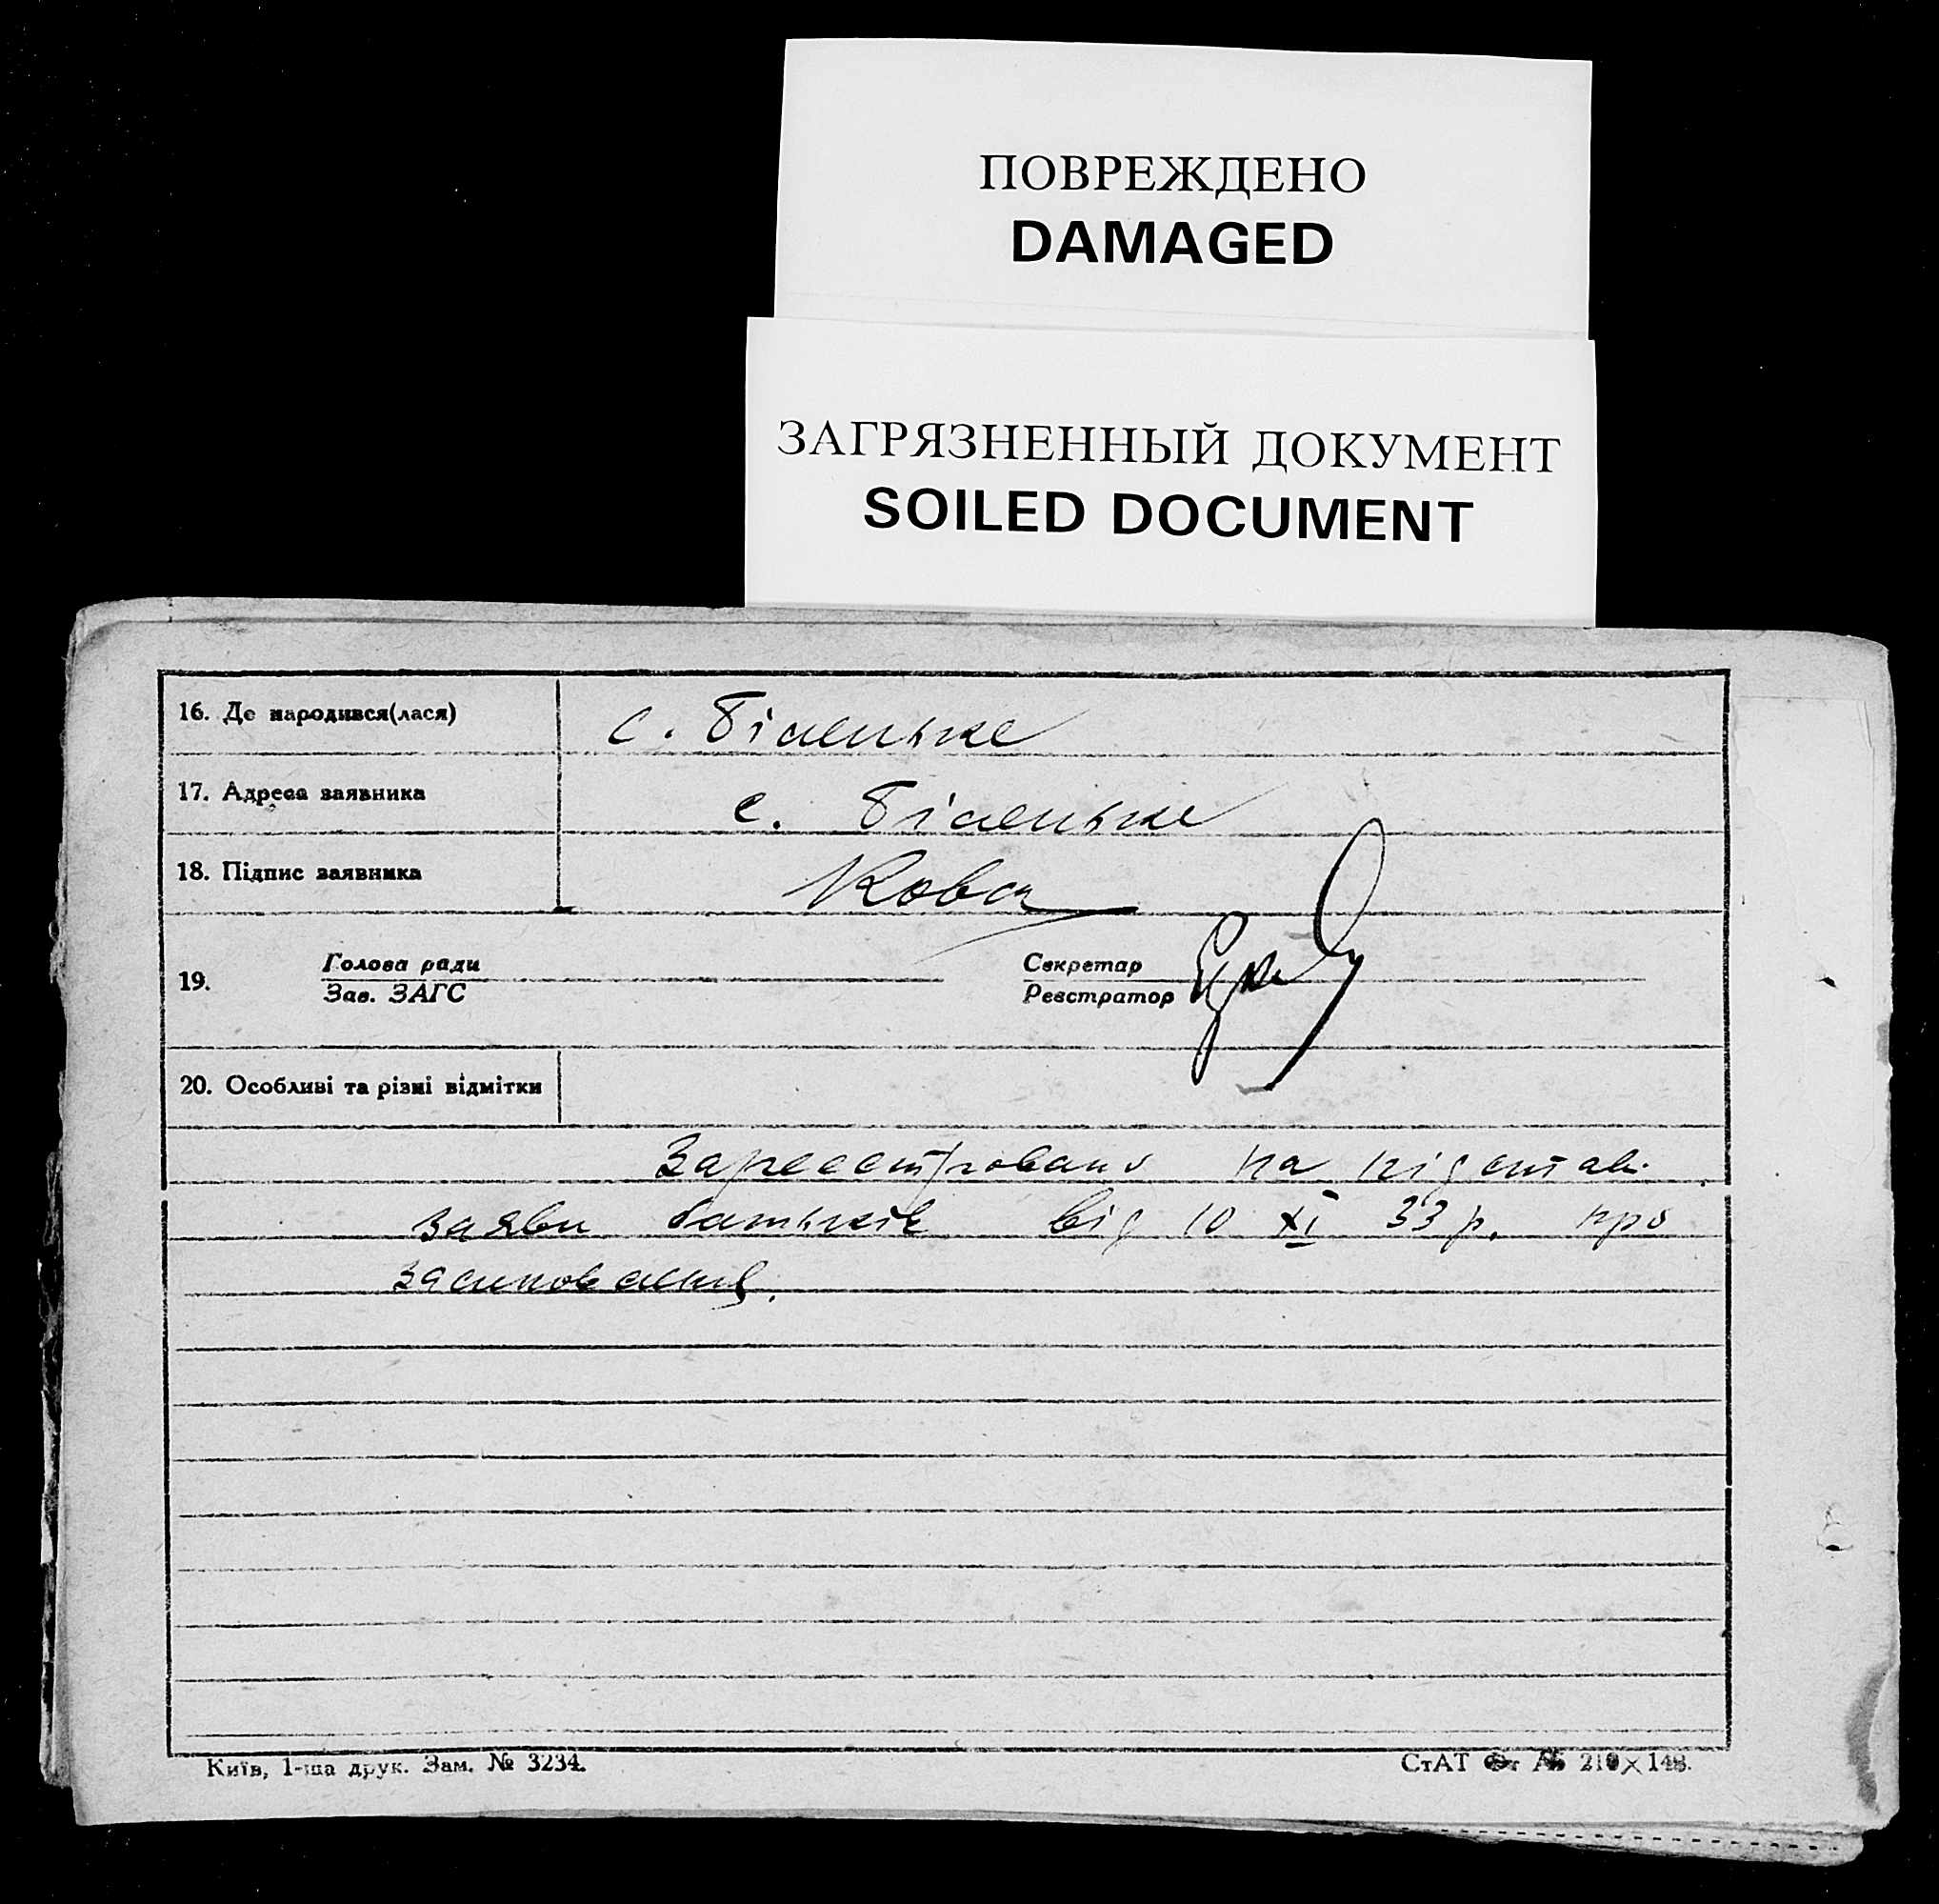 ПОВРЕЖДЕНО
DAMAGED
ЗАГРЯЗНЕННЫЙ ДОКУМЕНТ
SOILED DOCUMENT
16. Де народився(лася) с. Біленьке
17. Адреса заявника с. Біленьке
18. Підпис заявника
19. Голова ради Секретар
Зав. ЗАГС Реєстратор
20. Особливі та різні відмітки
Зареєстровано на підставі
заяви батьків від 10 XI 33 р. про
Київ, 1-ша друк. Зам. № 3234.
СтАТ 210×148.